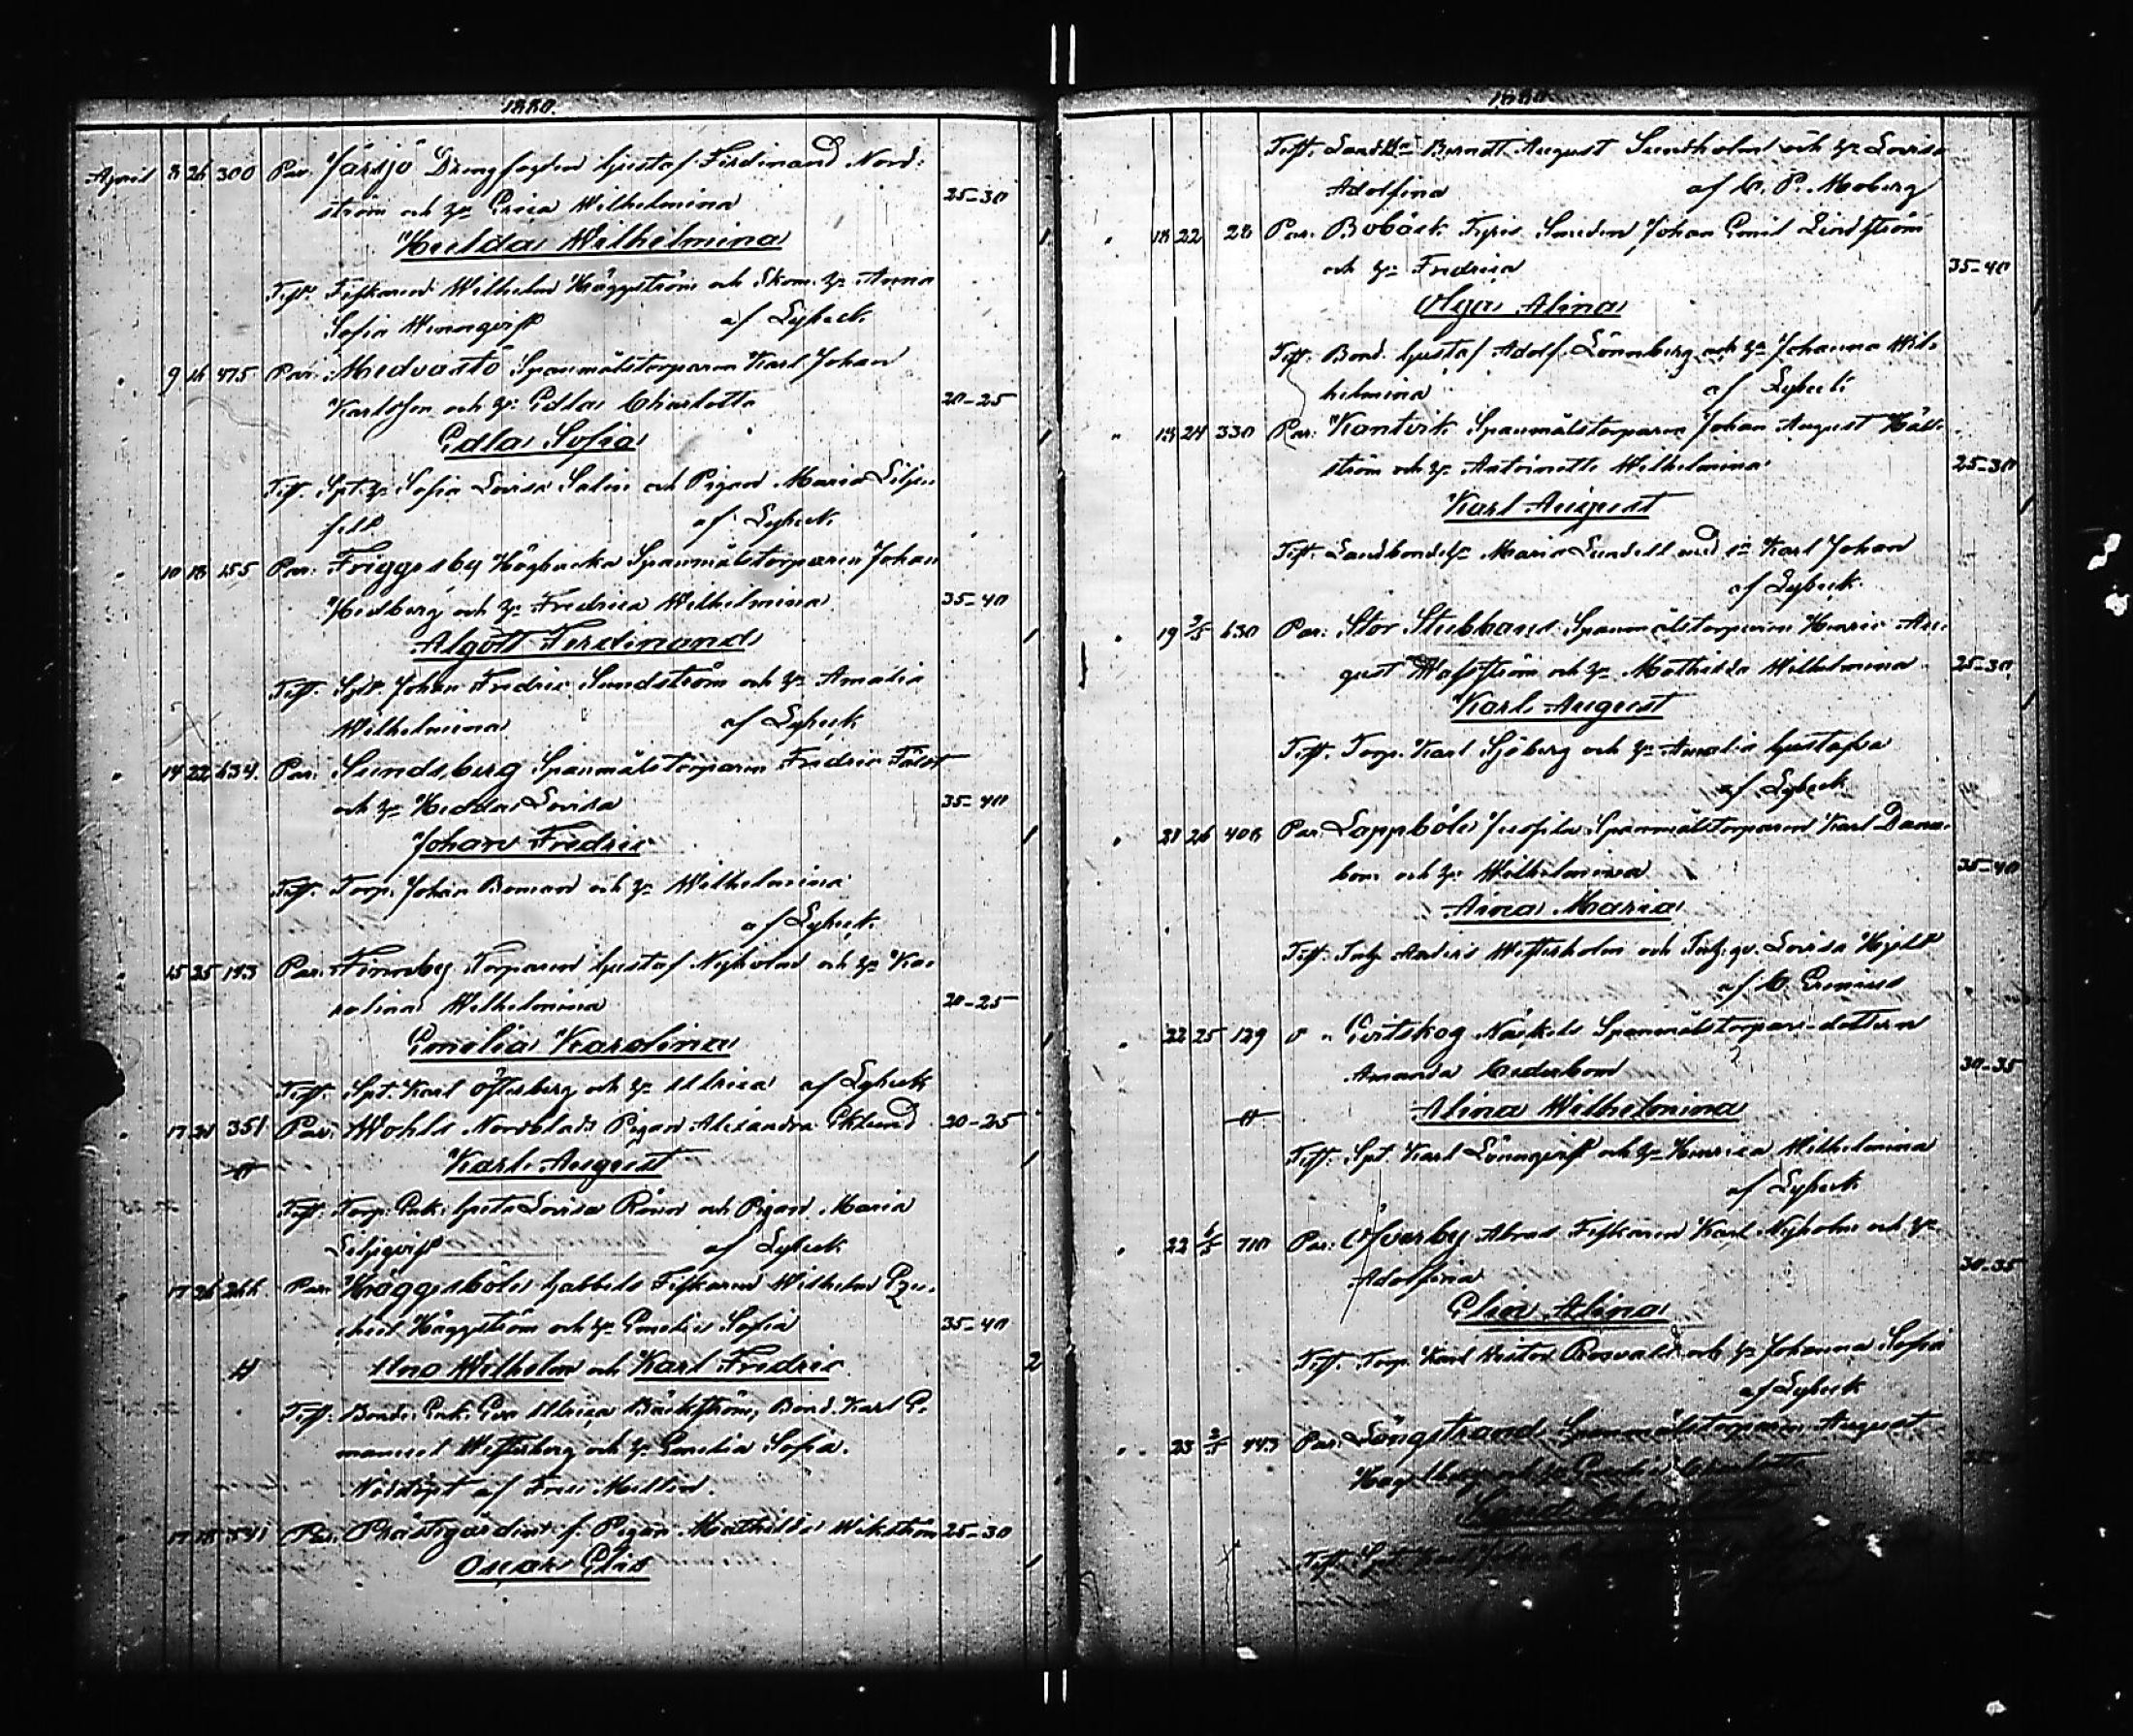 1880.
April 8 26 300 Par. Järsjö Drengfogden Gustaf Ferdinand Nord-
ström och h. Erica Wilhelmina 25-30
Hulda Wilhelmina 1
Test. Fiskaren Wilhelm Häggström och Skom. h. Anna
Sofia Wennqvist af Lybeck
9 16 475 Par. Medvastö Spanmålstorparen Karl Johan
Karlsson och h. Edla Charlotta 20-25
Edla Sofia 1
Test. Spt. h. Sofia Lovisa Salin och Pigan Maria Liljen
felt af Lybeck
10 18 155 Par. Friggesby Högbacka Spanmålstorparen Johan
Hedberg och h. Fredrica Wilhelmina 35-40
Algott Ferdinand 1
Test. Johan Fredric Sundström och h. Amalia
Wilhelmina af Lybeck
14 22 634. Par. Sundsberg Spanmålstorparen Fredric Fält
och h. Hedda Lovisa 35-40
Johan Fredric 1
Test. Torp. Johan Boman och h. Wilhelmina
af Lybeck
15 25 193 Par. Finnsby Torparen Gustaf Nyholm och h. Ka-
rolina Wilhelmina 20-25
Emelia Karolina 1
Test. Spt. Karl Österberg och h. Ulrica af Lybeck
17 351 Par. Wohls Norrblads Pigan Alexandra Eklund 20-25
Karl August 1
Test. Torp. Enk. Greta Lovisa Rönn och Pigan Maria
Liljeqvist af Lybeck
17 26 266 Par. Häggesböle Gabbels Fiskaren Wilhelm Eze-
chiel Häggström och h. Emelie Sofia 35-40
Uno Wilhelm och Karl Fredric 2
Test. Bonde Enk. Eva Ulrica Bäckström, Bond. Karl E-
manuel Westerberg och h. Emelia Sofia.
Nöddöpt af Fru Mellin.
17 18 541 Par. Prästgården f. Pigan Mathilda Wikström 25-30
Oscar Elis 1
1880
Test. Berndt August Sundholm och h. Lovisa
Adolfina af C. P. Moberg
18 22 28 Par. Bobäck Fyris Smeden Johan Emil Lindström
och h. Fredrica 35-40
Olga Alina 1
Test. Bond. Gustaf Adolf Lönnberg och h. Johanna Wil-
helmina af Lybeck
18 24 330 Par. Kantvik Spanmålstorparen Johan August Häll-
ström och h. Antoinette Wilhelmina 25-30
Karl August 1
Test. Landbondeh. Maria Lundell med sn Karl Johan
af Lybeck
19 2/5 630 Par. Stor Stubbans Spanmålstorparen Henric Au-
gust Wasström och h. Mathilda Wilhelmina 25-30
Karl August 1
Test. Torp. Karl Sjöberg och h. Amalia Gustafva
af Lybeck
21 26 408 Par. Lappböle Jusfila Spanmålstorparen Karl Dane-
bom och h. Wilhelmina 35-40
Aina Maria
Test. Inh. Anders Westerholm och Inh. qv. Lovisa Hjelt
af C. Grenius
22 25 129 o " Evitskog Näckels Spanmålstorpare-dottern
Amanda Cederbom 30-35
Alina Wilhelmina
Test. Spt. Karl Lönnqvist och h. Henrica Wilhelmina
af Lybeck
22 6/5 710 Par. Öfverby Abras Fiskaren Karl Nyholm och h.
Adolfina 30-35
Elin Alina
Test. Torp. Karl Kristor Rosvall och h. Johanna Sofia
af Lybeck
23 2/5 443 Par. Långstrand Spanmålstorparen August
Hagelberg och h.
Test. Spt.